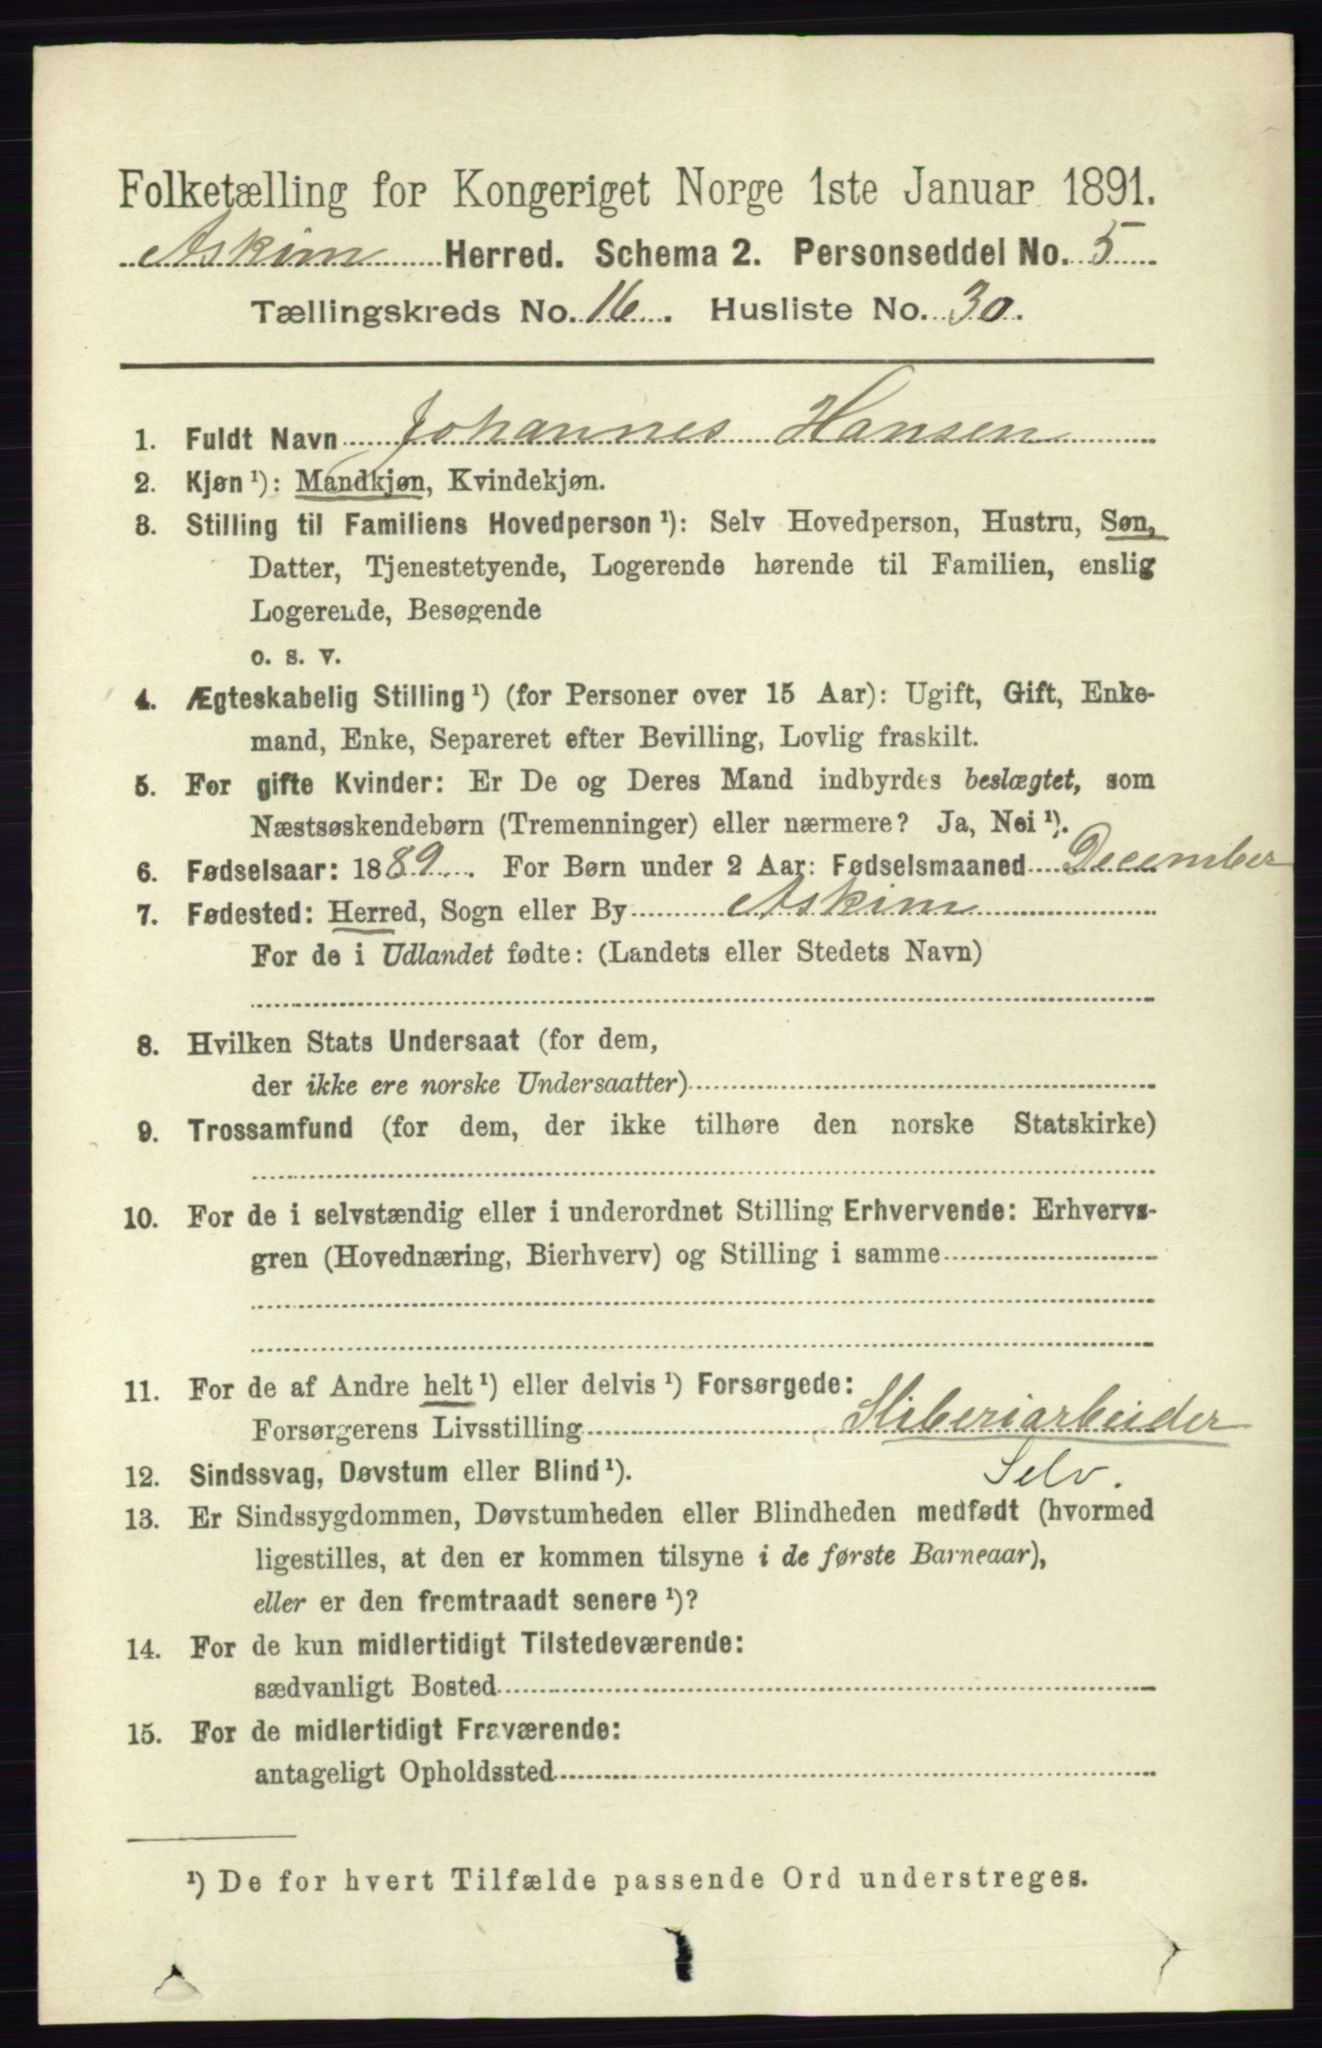 Folketælling for Kongeriget Norge 1ste Januar 1891.
Askim Herred. Schema 2. Personseddel No. 5
Tællingskreds No. 16. Husliste No. 30.
1. Fuldt Navn Johannes Hansen
2. Kjøn ¹): Mandkjøn, Kvindekjøn.
3. Stilling til Familiens Hovedperson ¹): Selv Hovedperson, Hustru, Søn,
Datter, Tjenestetyende, Logerende hørende til Familien, enslig
Logerende, Besøgende
o. s. v.
4. Ægteskabelig Stilling ¹) (for Personer over 15 Aar): Ugift, Gift, Enke-
mand, Enke, Separeret efter Bevilling, Lovlig fraskilt.
5. For gifte Kvinder: Er De og Deres Mand indbyrdes beslægtet, som
Næstsøskendebørn (Tremenninger) eller nærmere? Ja, Nei ¹).
6. Fødselsaar: 1889. For Børn under 2 Aar: Fødselsmaaned December
7. Fødested: Herred, Sogn eller By Askim
For de i Udlandet fødte: (Landets eller Stedets Navn)
8. Hvilken Stats Undersaat (for dem,
der ikke ere norske Undersaatter)
9. Trossamfund (for dem, der ikke tilhøre den norske Statskirke)
10. For de i selvstændig eller i underordnet Stilling Erhvervende: Erhvervs-
gren (Hovednæring, Bierhverv) og Stilling i samme
11. For de af Andre helt ¹) eller delvis ¹) Forsørgede:
Forsørgerens Livsstilling Sliberiarbeider
12. Sindssvag, Døvstum eller Blind ¹). Selv.
13. Er Sindssygdommen, Døvstumheden eller Blindheden medfødt (hvormed
ligestilles, at den er kommen tilsyne i de første Barneaar),
eller er den fremtraadt senere ¹)?
14. For de kun midlertidigt Tilstedeværende:
sædvanligt Bosted
15. For de midlertidigt Fraværende:
antageligt Opholdssted
¹) De for hvert Tilfælde passende Ord understreges.